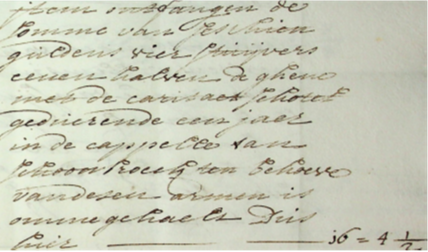 item ontfangen de
somme van sesthien
guldens vier stuijvers
eenen halven d ghene
met de carisaet schotel
geduerende een jaer
in de cappelle van
schoonhoeck ten behoeve
vandesen armen is
ommegehaelt Dus
hier 16 = 4 1/2